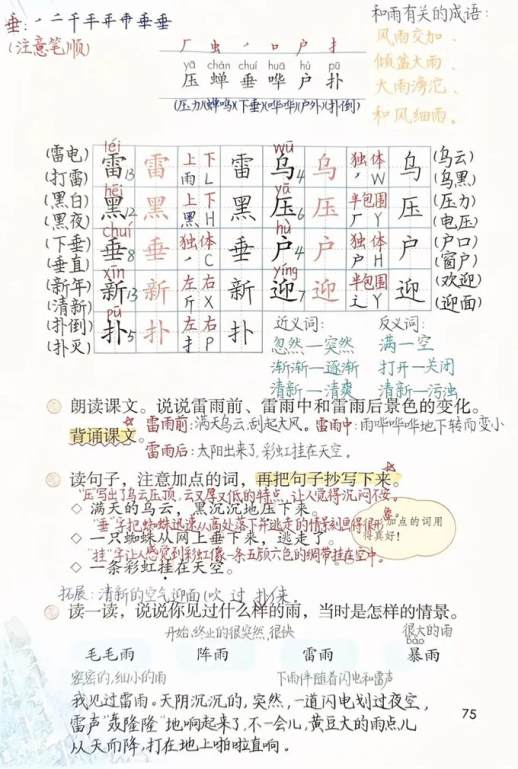 垂:丿二千壬乒乖垂垂
(注意笔顺)
和雨有关的成语:
风雨交加、
倾盆大雨、
大雨滂沱、
和风细雨。
厂 虫 丿 口 户 扌
yā chán chuí huā hù pū
压 蝉 垂 哗 户 扑
(压力)(蝉鸣)(下垂)(哗哗)(户外)(扑倒)
(雷电) léi 雷13 雷 上下 雨 L 雷 wū 乌4 乌 独体 丿 W 乌 (乌云)
(打雷) (乌黑)
(黑白) hēi 黑12 黑 上下 黑 H 黑 yā 压6 压 半包围 厂 Y 压 (压力)
(黑夜) (电压)
(下垂) chuí 垂8 垂 独体 丿 C 垂 hù 户4 户 独体 户 H 户 (户口)
(垂直) (窗户)
(新年) xīn 新13 新 左右 斤 X 新 yíng 迎7 迎 半包围 辶 Y 迎 (欢迎)
(清新) (迎面)
(扑倒) pū 扑5 扑 左右 扌 P 扑
(扑灭)
近义词: 反义词:
忽然—突然 满—空
渐渐—逐渐 打开—关闭
清新—清爽 清新—污浊
朗读课文。说说雷雨前、雷雨中和雷雨后景色的变化。
背诵课文。 雷雨前:满天乌云,刮起大风。雷雨中:雨哗哗哗地下转而变小
雷雨后:太阳出来了,彩虹挂在天空。
读句子,注意加点的词,再把句子抄写下来。
"压"写出了乌云压顶,云又厚又低的特点,让人觉得沉闷不安。
◇ 满天的乌云,黑沉沉地压下来。
"垂"字把蜘蛛迅速从高处落下并逃走的情景刻画得很形象。
◇ 一只蜘蛛从网上垂下来,逃走了。
加点的词用得真好!
"挂"字让人感觉到彩虹像一条五颜六色的绸带挂在空中。
◇ 一条彩虹挂在天空。
拓展:清新的空气迎面(吹 过 扑)来。
读一读,说说你见过什么样的雨,当时是怎样的情景。
开始、终止的很突然,很快 很大的雨
bào
毛毛雨 阵雨 雷雨 暴雨
密密的,细小的雨 下雨伴随着闪电和雷声
我见过雷雨。天阴沉沉的,突然,一道闪电划过夜空,
雷声"轰隆隆"地响起来了,不一会儿,黄豆大的雨点儿
从天而降,打在地上啪啦直响。
75